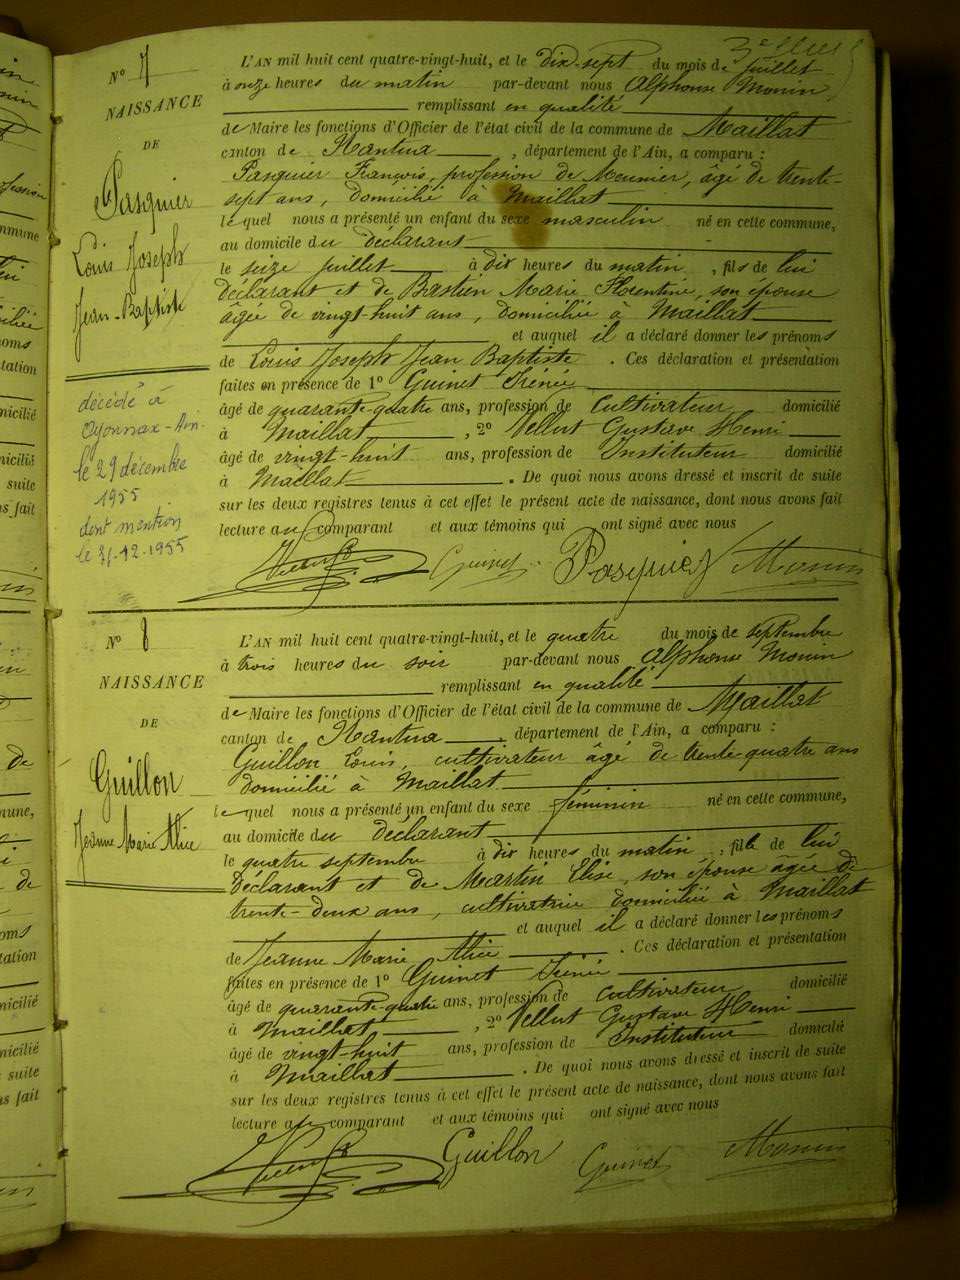 N° 7
NAISSANCE
DE
Pasquier
Louis Joseph
Jean-Baptiste
décédé à
Oyonnax-Ain.
le 29 décembre
1955
dont mention
le 31-12-1955
L'AN mil huit cent quatre-vingt-huit, et le dix-sept du mois de juillet
à onze heures du matin par-devant nous Alphonse Monin
remplissant en qualité
de Maire les fonctions d'Officier de l'état civil de la commune de Maillat
canton de Nantua, département de l'Ain, a comparu :
Pasquier François, profession de Meunier, âgé de trente-
sept ans, domicilié à Maillat
lequel nous a présenté un enfant du sexe masculin né en cette commune,
au domicile du déclarant
le seize juillet à dix heures du matin, fils de lui
déclarant et de Bastien Marie Florentine, son épouse
âgée de vingt-huit ans, domiciliée à Maillat
et auquel il a déclaré donner les prénoms
de Louis Joseph Jean Baptiste. Ces déclaration et présentation
faites en présence de 1° Guinet Irénée
âgé de quarante-quatre ans, profession de cultivateur domicilié
à Maillat, 2° Vellut Gustave Henri
âgé de vingt-huit ans, profession de Instituteur domicilié
à Maillat. De quoi nous avons dressé et inscrit de suite
sur les deux registres tenus à cet effet le présent acte de naissance, dont nous avons fait
lecture au comparant et aux témoins qui ont signé avec nous
Guinet Pasquier Monin
N° 8
NAISSANCE
DE
Guillon
Jeanne Marie Alice
L'AN mil huit cent quatre-vingt-huit, et le quatre du mois de septembre
à trois heures du soir par-devant nous Alphonse Monin
remplissant en qualité
de Maire les fonctions d'Officier de l'état civil de la commune de Maillat
canton de Nantua, département de l'Ain, a comparu :
Guillon Louis, cultivateur âgé de trente quatre ans
domicilié à Maillat
lequel nous a présenté un enfant du sexe féminin né en cette commune,
au domicile du déclarant
le quatre septembre à dix heures du matin, fille de lui
déclarant et de Martin Elise, son épouse âgée de
trente-deux ans, cultivatrice domiciliée à Maillat
et auquel il a déclaré donner les prénoms
de Jeanne Marie Alice. Ces déclaration et présentation
faites en présence de 1° Guinet Irénée
âgé de quarante-quatre ans, profession de cultivateur domicilié
à Maillat, 2° Vellut Gustave Henri
âgé de vingt-huit ans, profession de Instituteur domicilié
à Maillat. De quoi nous avons dressé et inscrit de suite
sur les deux registres tenus à cet effet le présent acte de naissance, dont nous avons fait
lecture au comparant et aux témoins qui ont signé avec nous
Guillon Guinet Monin